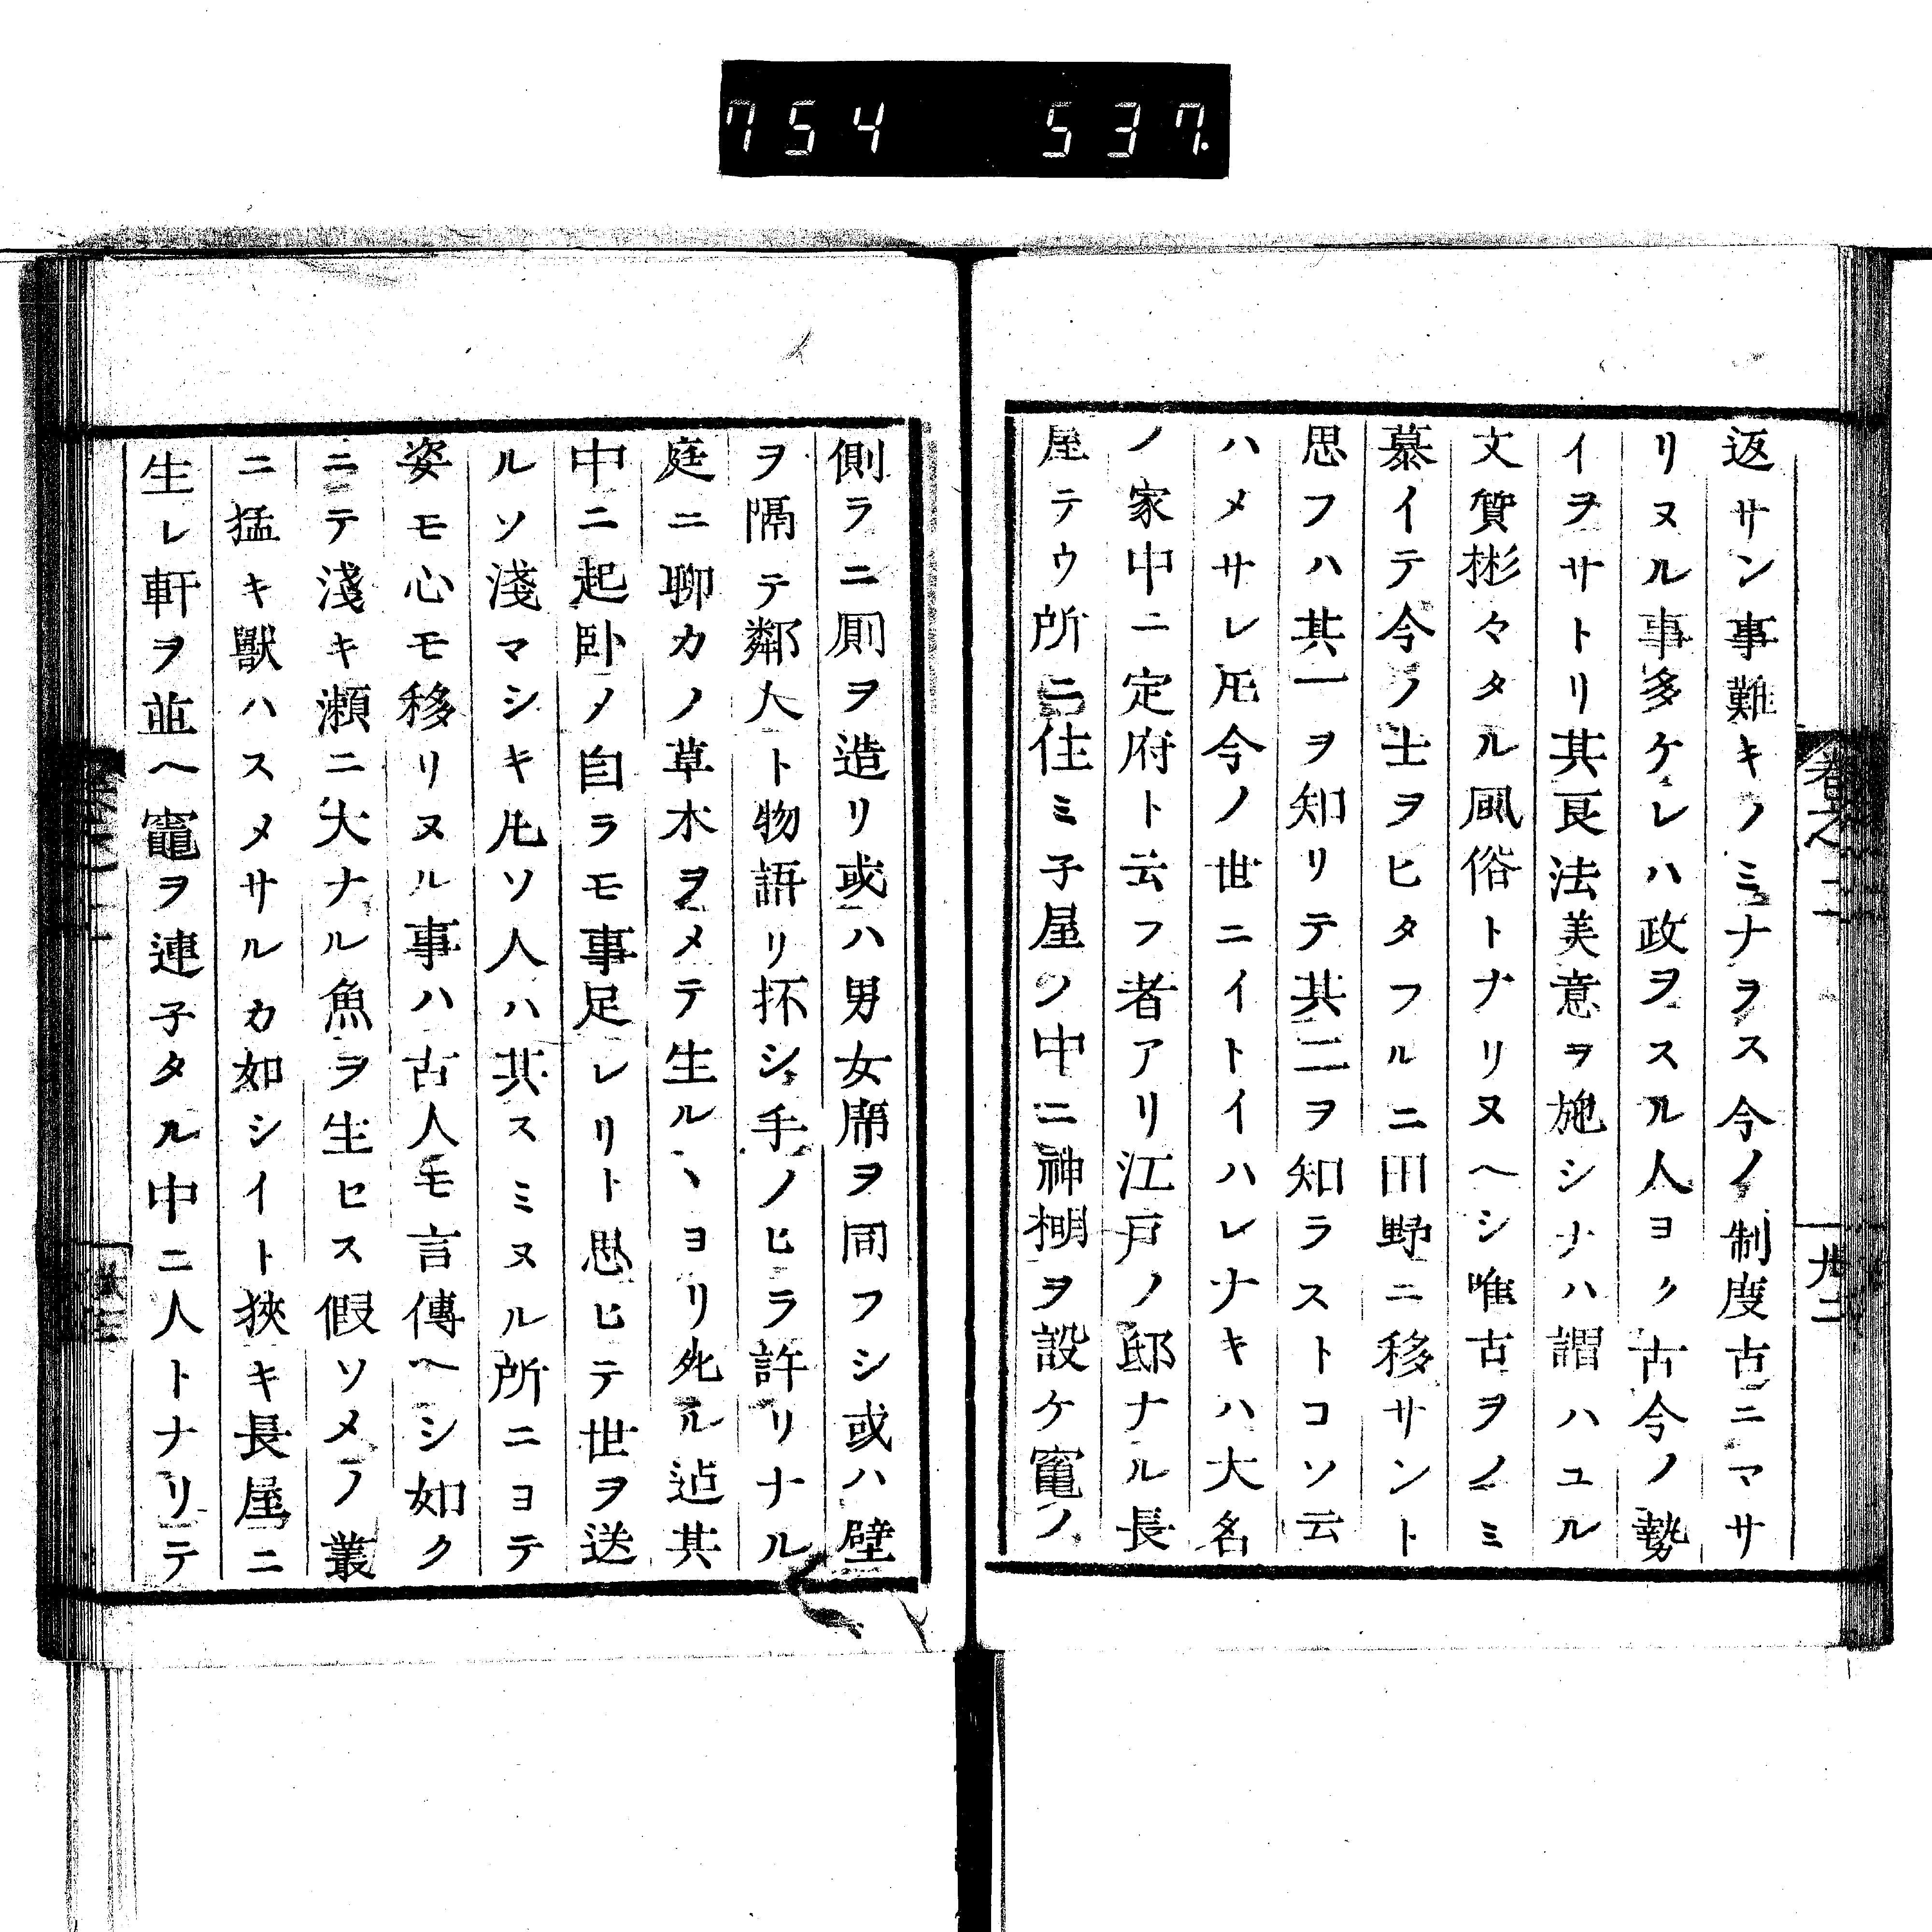 754 537.
卷之二
廿二
返サン事難キノミナラス今ノ制度古ニマサ
リヌル事多ケレハ政ヲスル人ヨク古今ノ勢
イヲサトリ其良法美意ヲ施シナハ謂ハユル
文質彬々タル風俗トナリヌヘシ唯古ヲノミ
慕イテ今ノ士ヲヒタフルニ田野ニ移サント
思フハ其一ヲ知リテ其二ヲ知ラストコソ云
ハメサレ𪜈今ノ世ニイトイハレナキハ大名
ノ家中ニ定府ト云フ者アリ江戸ノ邸ナル長
屋テウ所ニ住ミ子屋ノ中ニ神棚ヲ設ケ竈ノ
側ラニ厠ヲ造リ或ハ男女席ヲ同フシ或ハ壁
ヲ隔テ鄰人ト物語リ抔シ手ノヒラ許リナル
庭ニ聊カノ草木ヲヲメテ生ルヽヨリ死ル迠其
中ニ起臥ノ自ラモ事足レリト思ヒテ世ヲ送
ルソ淺マシキ凡ソ人ハ其スミヌル所ニヨテ
姿モ心モ移リヌル事ハ古人モ言傳ヘシ如ク
ニテ淺キ瀬ニ大ナル魚ヲ生セス假ソメノ叢
ニ猛キ獸ハスメサルカ如シイト狹キ長屋ニ
生レ軒ヲ並ヘ竈ヲ連子タル中ニ人トナリテ